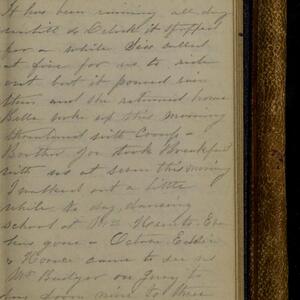 It has been raining all day
untill 20 Oclock it stopped
for a while Sis called
at five for us to ride
out but it poured rain
then and she returned home
Belle woke up this morning
threatened with Croup
Brother Joe took Breakfast
with us at seven this morning
I walked out a little
while to day, dancing
school at Mrs
has gone
& came to see us
Mr Badger on Gray to
has down nine to three